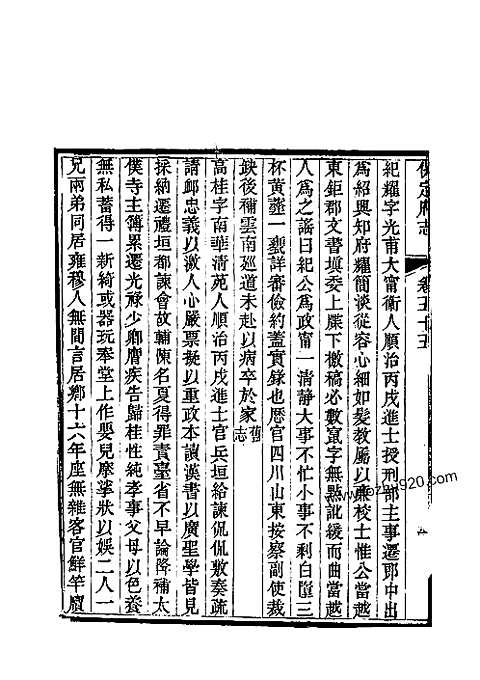 保定府志 卷五十五
紀耀字光甫大甯衛人順治丙戌進士授刑部主事遷郎中出
為紹興知府耀簡淡從容心細如髮教屬以廉校士惟公當越
東鉅郡文書填委上牒下檄稿必數竄字無點訛緩而曲當越
人為之謠曰紀公為政甯一清靜大事不忙小事不剩白隨三
杯黃虀一甌詳審儉約蓋實錄也歴官四川山東按察副使裁
缺後補雲南廵道未赴以病卒於家 舊志
高桂字南華清苑人順治丙戌進士官兵垣給諫侃侃敷奏疏
請卹忠義以激人心嚴票擬以重政本讀漢書以廣聖學皆見
採納遷禮垣都諫會故輔陳名夏得罪責臺省不早論降補太
僕寺主簿累遷光祿少卿膺疾告歸桂性純孝事父母以色養
無私蓄得一新綺或器玩奉堂上作嬰兒摩挲狀以娛二人一
兄兩弟同居雍穆人無間言居鄉十六年座無雜客官鮮竿牘
fozhu920.com